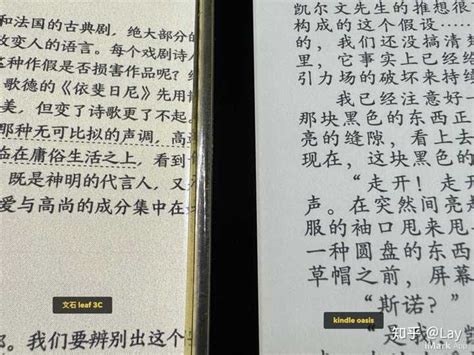 和法国的古典剧，绝大部分的
改变人的语言。每个戏剧诗人
这种作假是否损害作品呢？
歌德的《依斐日尼》先用
美，但变了诗歌更了不起。
那种无可比拟的声调，高
临在庸俗生活之上，看到
既是神明的代言人，又
爱与高尚的成分集中在
文石 leaf 3C
我们要辨别出这个
凯尔文先生的推想很
构成的这个假设
的，我们还没搞清楚
里，它事实上已经
引力场的破坏来持
我已经注意好
那块黑色的东西正
亮的缝隙，看上去
现在，这块黑色的
“走开！走
声。在突然间亮
服的袖口甩来甩
一种圆盘的东西
草帽之前，屏幕
“斯诺？”
“是我
kindle oasis
知乎 @Lay
iMark App